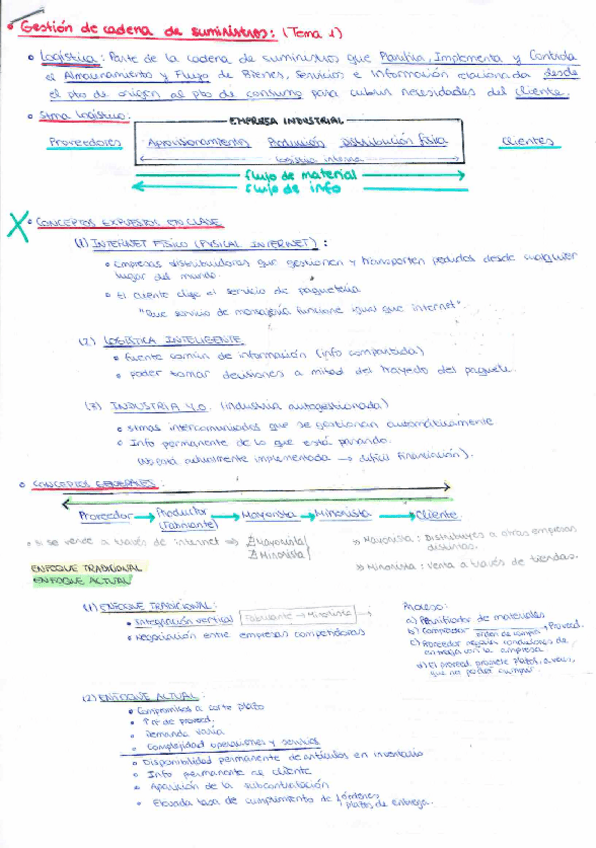 • Gestión de cadena de suministros: (Tema 1)
• Logística: Parte de la cadena de suministros que Planifica, Implementa y Controla
el Almacenamiento y Flujo de Bienes, Servicios e Información relacionada desde
el pto de origen al pto de consumo para cubrir necesidades del Cliente.
• Stma logístico:
EMPRESA INDUSTRIAL
Proveedores Aprovisionamientos Producción Distribución física Clientes
logística interna
flujo de material
flujo de info
X • CONCEPTOS EXPUESTOS EN CLASE
(1) INTERNET FÍSICO (PYSICAL INTERNET):
• Empresas distribuidoras que gestionen y transporten productos desde cualquier
lugar del mundo.
• El cliente elige el servicio de paquetería
"Que servicio de mensajería funcione igual que internet".
(2) LOGÍSTICA INTELIGENTE
• Fuente común de información (info compartida)
• Poder tomar decisiones a mitad del trayecto del paquete.
(3) INDUSTRIA 4.0. (industria autogestionada)
• Stmas intercomunicados que se gestionan automáticamente
• Info permanente de lo que está pasando.
(No está actualmente implementada → difícil financiación).
• CONCEPTOS GENERALES:
Proveedor → Productor (Fabricante) → Mayorista → Minorista → Cliente
• Si se vende a través de internet ⇒ ∄ Mayorista
∄ Minorista
» Mayorista: Distribuye a otras empresas
distintas.
» Minorista: Venta a través de tiendas.
ENFOQUE TRADICIONAL
ENFOQUE ACTUAL
(1) ENFOQUE TRADICIONAL:
• Integración vertical Fabricante → Minorista
• Negociación entre empresas compradoras
Proceso:
a) Planificador de materiales
b) Comprador orden de compra → Proveed.
c) Proveedor negocia condiciones de
entrega con la empresa
d) El proveed. promete plazos, a veces,
que no podrá cumplir.
(2) ENFOQUE ACTUAL:
• Compromisos a corte plazo
• ↑ nº de proveed.
• Demanda varía
• Complejidad operaciones y servicios
• Disponibilidad permanente de artículos en inventario
• Info permanente al cliente
• Aparición de la subcontratación
• Elevada tasa de cumplimiento de órdenes
plazos de entrega.